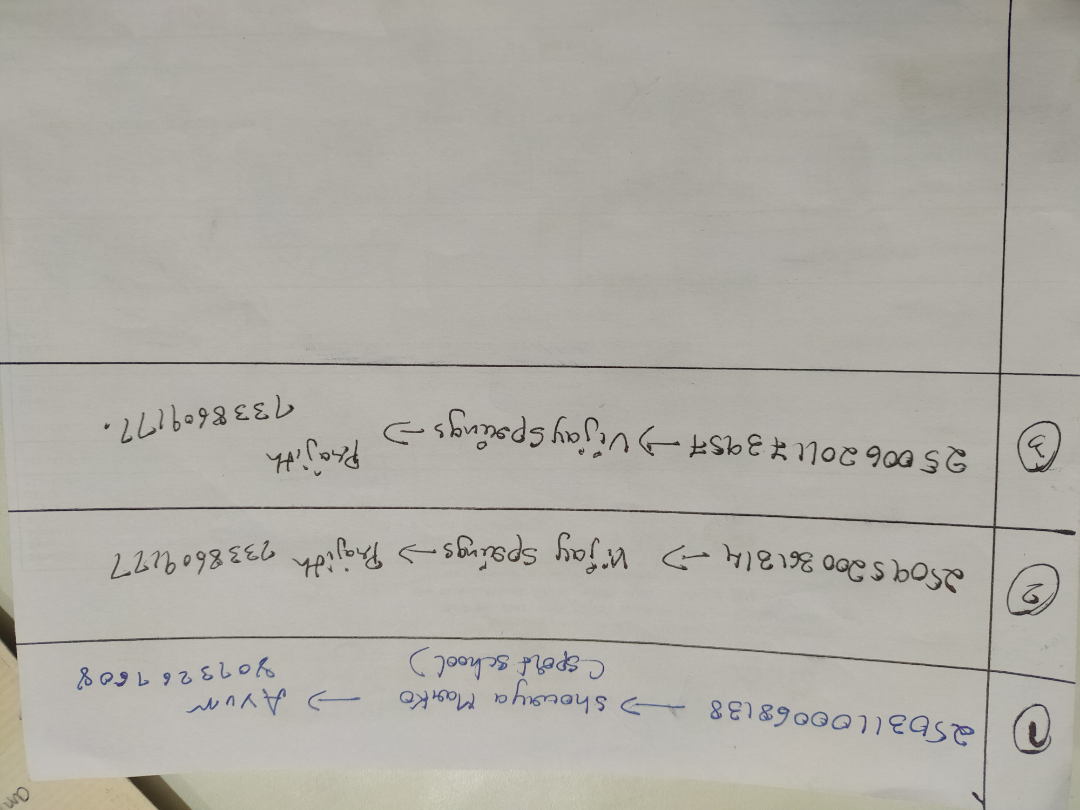 ① 25031100068138 → shourya Marko → Ayur
(sport school) 8073267608
② 25095200361314 → Vijay Springs → Prajith 7338609177
③ 25006201173957 → Vijay Springs → Prajith
7338609177.